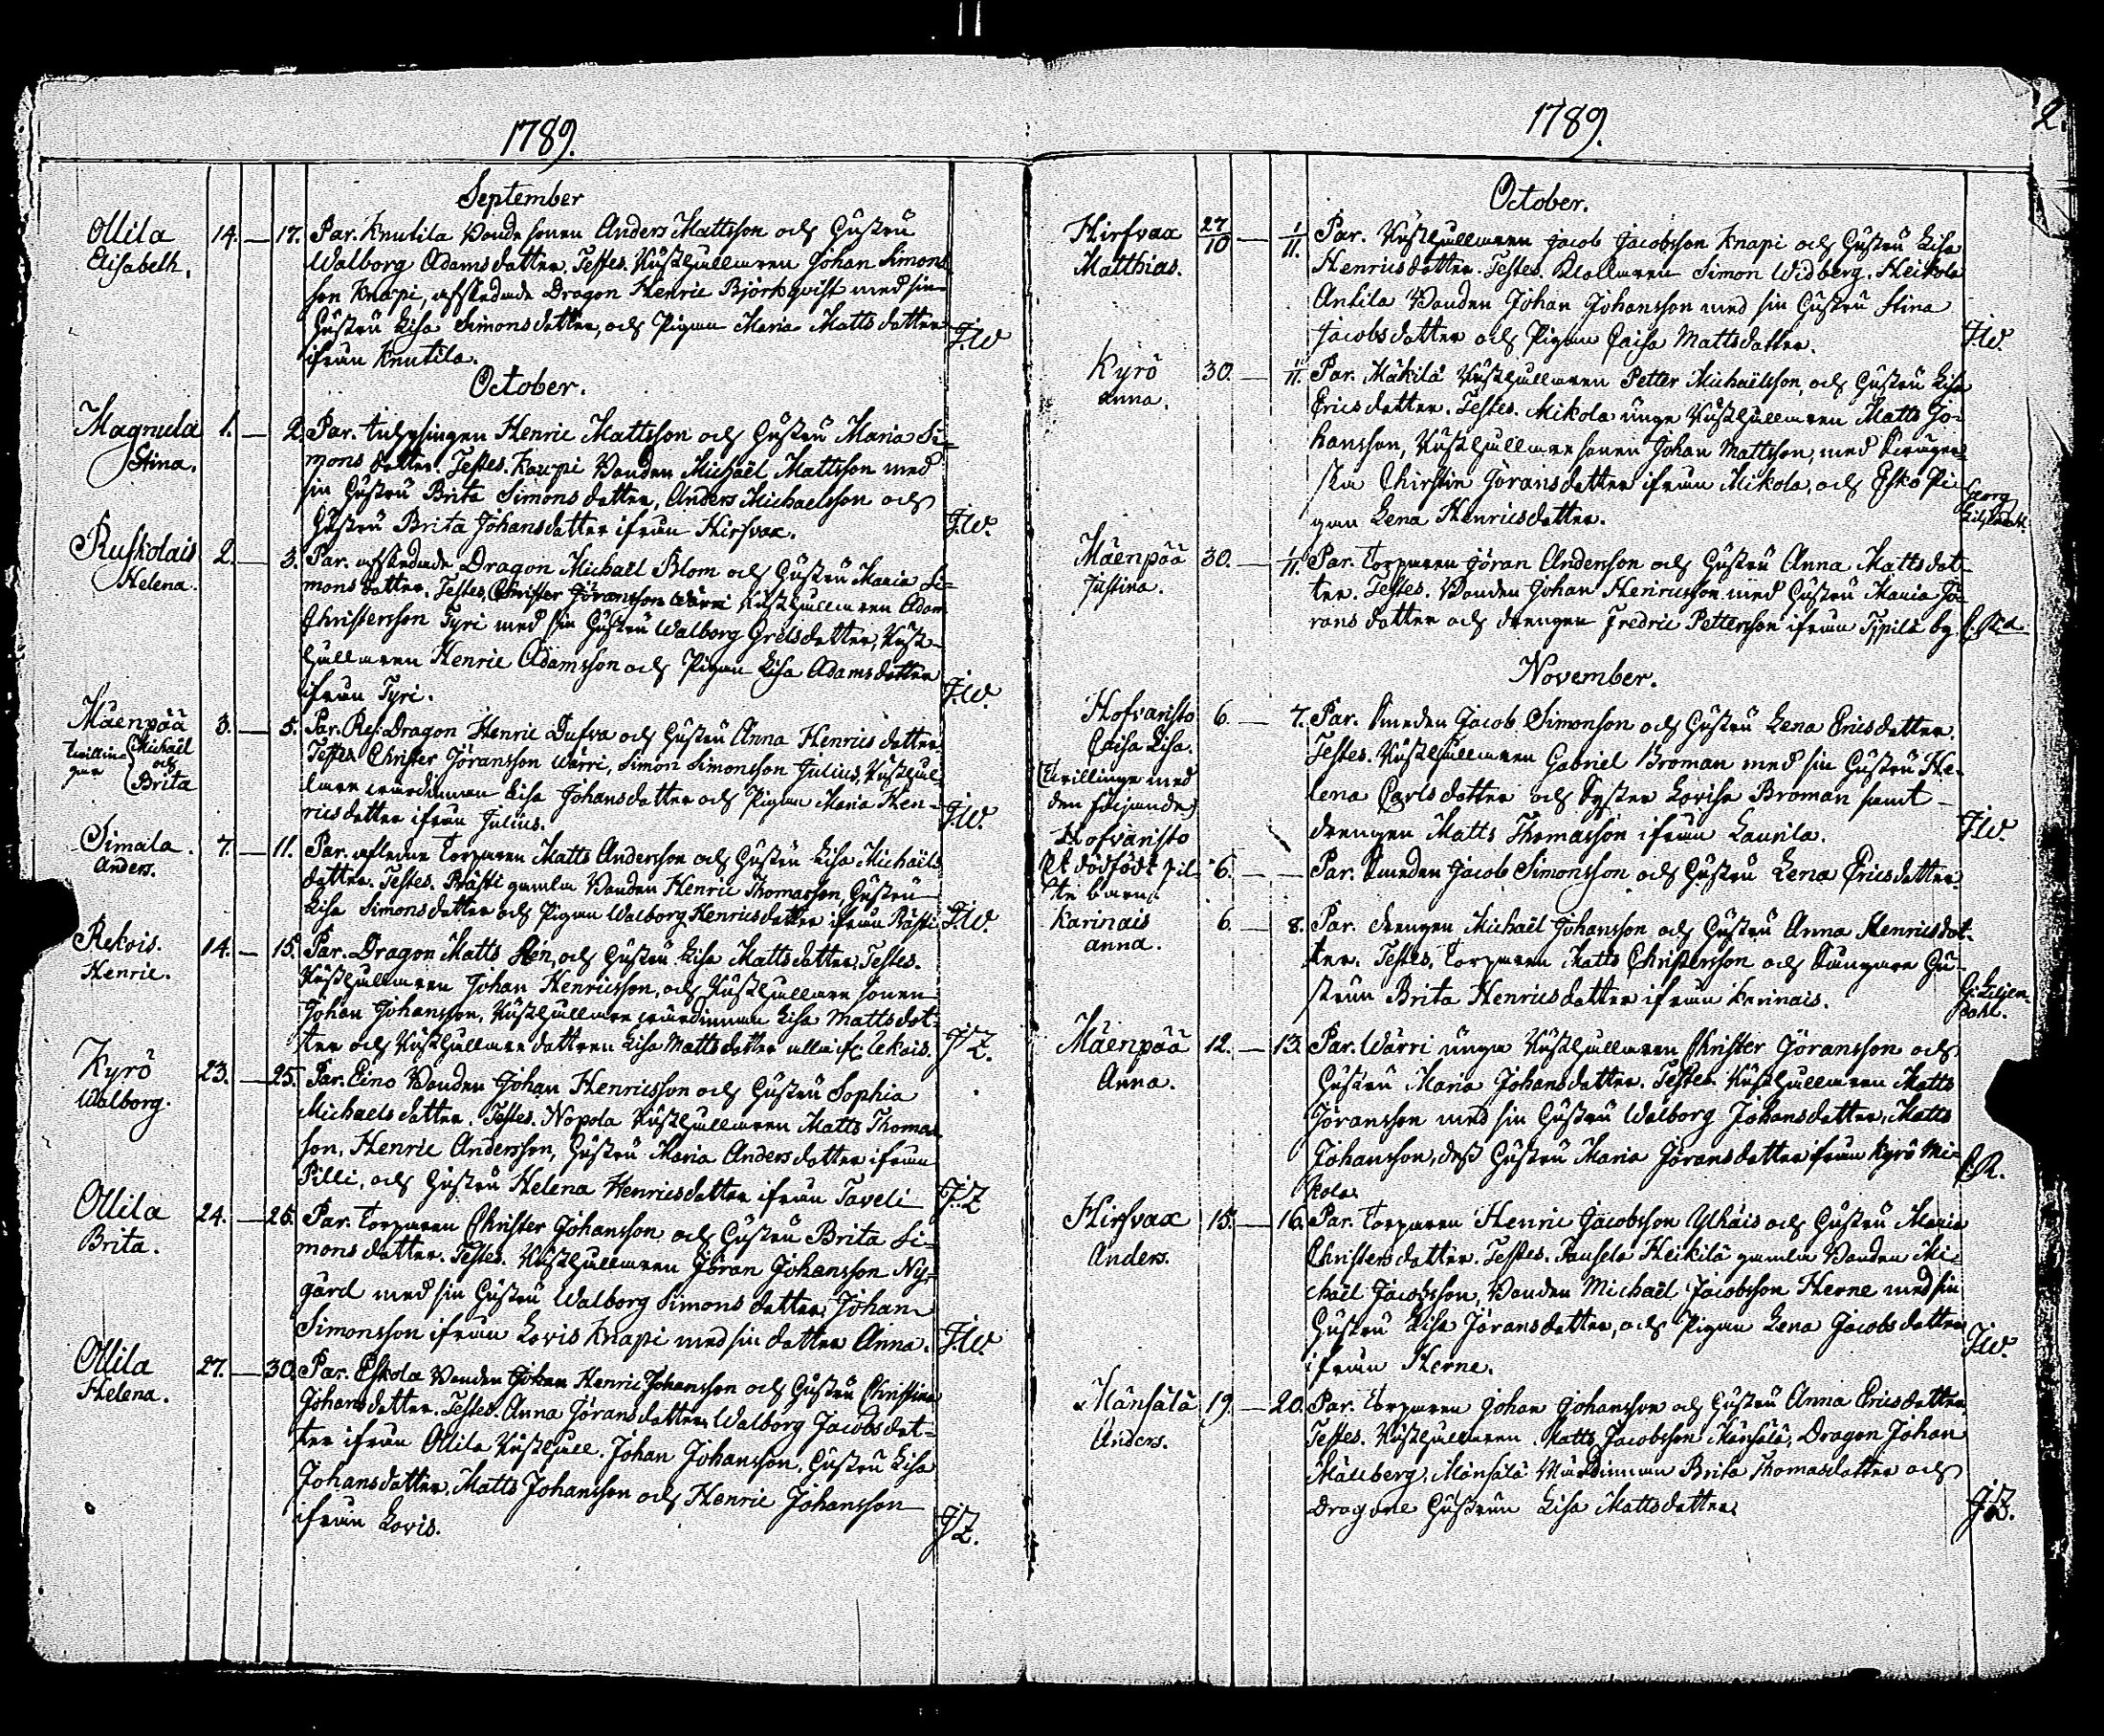 1789.
September
Ollila 14. — 17. Par. Knutila Bonde sonen Anders Mattsson och Hustru
Elisabeth. Walborg Adamsdotter. Testes. Rusthållaren Johan Simons
son Knapi, afskedade Dragon Henric Björkqvist med sin
Hustru Lisa Simonsdotter, och Pigan Maria Mattsdotter J.W.
ifrån Knutila.
October.
Magnula 1. — 2. Par. Henric Mattsson och Hustru Maria Si=
Stina. monsdotter. Testes. Kaupi Bonden Michaël Mattsson med
sin Hustru Brita Simonsdotter, Anders Michaelsson och
Hustru Brita Johansdotter ifrån Hirfvax. J.W.
Ruskolais 2. — 3. Par. afskedade Dragon Michaël Blom och Hustru Maria Si=
Helena. monsdotter. Testes, Christer Jöransson Wärri Rusthållaren Adam
Christersson Tyri med sin Hustru Walborg Grelsdotter, Rust-
hållaren Henric Adamsson och Pigan Lisa Adamsdotter
ifrån Tyri. J.W.
Mäenpää 3. — 5. Par. Res. Dragon Henric Dufva och Hustru Anna Henricsdotter
twillin= gar Michaël och Brita Testes Christer Jöransson Wärri, Simon Simonsson Julius, Rusthål=
lare wärdinnan Lisa Johansdotter och Pigan Maria Hen-
ricsdotter ifrån Julius. J.W.
Simala. 7. — 11. Par. afledne Torparen Matts Andersson och Hustru Lisa Michaëls
Anders. dotter. Testes. Prästi gamla Bonden Henric Thomasson, Hustru
Lisa Simonsdotter och Pigan Walborg Henricsdotter ifrån Prästi J.W.
Rekois. 14. — 15. Par. Dragon Matts och Hustru Lisa Mattsdotter. Testes.
Henric. Rusthållaren Johan Henricsson, och Rusthållare sonen
Johan Johansson, Rusthållare wärdinnan Lisa Mattsdot=
ter och Rusthållare dottren Lisa Mattsdotter alla if. Ukois. J.Z.
Kyrö 23. — 25. Par. Eino Bonden Johan Henricsson och Hustru Sophia
Walborg. Michaelsdotter. Testes. Nopola Rusthållaren Matts Thomas
son, Henric Andersson, Hustru Maria Andersdotter ifrån
Pilli, och Hustru Helena Henricsdotter ifrån Taveli J.Z
Ollila 24. — 26. Par. Torparen Christer Johansson och Hustru Brita Si=
Brita. monsdotter. Testes. Rusthållaren Jöran Johansson Ny=
gård med sin Hustru Walborg Simonsdotter, Johan
Simonsson ifrån Lovis Knapi med sin dotter Anna. J.W.
Ollila 27. — 30. Par. Eskola Bonden Henric Johansson och Hustru Christina
Helena. Johansdotter. Testes. Anna Jöransdotter, Walborg Jacobsdot=
ter ifrån Ollila Rusthåll. Johan Johansson, Hustru Lisa
Johansdotter, Matts Johansson och Henric Johansson
ifrån Lovis. J.Z.
1789. 2.
October.
Hirfvax 27/10 — 1/11. Par. Rusthållaren Jacob Jacobsson Knapi och Hustru Lisa
Matthias. Henricsdotter. Testes. Simon Widberg. Heikola
Antila Bonden Johan Johansson med sin Hustru Stina
Jacobsdotter och Pigan Caisa Mattsdotter. J.W.
Kyrö 30. — 1/11. Par. Mäkilä Rusthållaren Petter Michaëlsson, och Hustru Lisa
Anna. Ericsdotter. Testes. Mikola unge Rusthållaren Matts Jo=
hansson, Rusthållare sonen Johan Mattsson, med
Chirstin Jöransdotter ifrån Mikola, och Esko Pi=
gan Lena Henricsdotter. Georg
Mäenpää 30. — 1/11. Par. Torparen Jöran Andersson och Hustru Anna Mattsdot-
Justina. ter. Testes. Bonden Johan Henricsson med Hustru Maria Jö-
ransdotter och drengen Fredric Pettersson ifrån by
November.
Hofvaristo 6. — 7. Par. Smeden Jacob Simonson och Hustru Lena Ericsdotter.
Caisa Lisa. Testes. Rusthållaren Gabriel Broman med sin Hustru He-
(twillinge med lena Carlsdotter och Syster Lovisa Broman samt
den följande) drengen Matts Thomasson ifrån Laurila. J.W.
Hofvaristo
Et dödfödt pil= 6. — — Par. Smeden Jacob Simonsson och Hustru Lena Ericsdotter.
te barn.
Karinais 6. — 8. Par. drengen Michaël Johansson och Hustru Anna Henricsdot-
Anna. ter. Testes. Torparen Matts Christersson och Sångare Hu-
strun Brita Henricsdotter ifrån Karinais. G. Liljen
Dahl.
Mäenpää 12. — 13. Par. Wärri unga Rusthållaren Christer Göransson och
Anna. Hustru Maria Johansdotter. Testes. Rusthållaren Matts
Jöransson med sin Hustru Walborg Johansdotter, Matts
Johansson, dess Hustru Maria Jöransdotter ifrån Kyrö Mi=
kola.
Hirfvax 15. — 16. Par. Torparen Henric Jacobsson Ylhäis och Hustru Maria
Anders. Christersdotter. Testes. Heikilä gamla Bonden Mi=
chaël Jacobsson, Bonden Michaël Jacobsson Herne med sin
Hustru Lisa Jöransdotter, och Pigan Lena Jacobsdotter
ifrån Herne. J.W.
Mänsälä 19. — 20. Par. Torparen Johan Johansson och Hustru Anna Ericsdotter,
Anders. Testes. Rusthållaren Matts Jacobsson Mänsälä, Dragon Johan
Mällberg, Mänsälä Wärdinnan Brita Thomasdotter och
Dragone Hustrun Lisa Mattsdotter. J.Z.